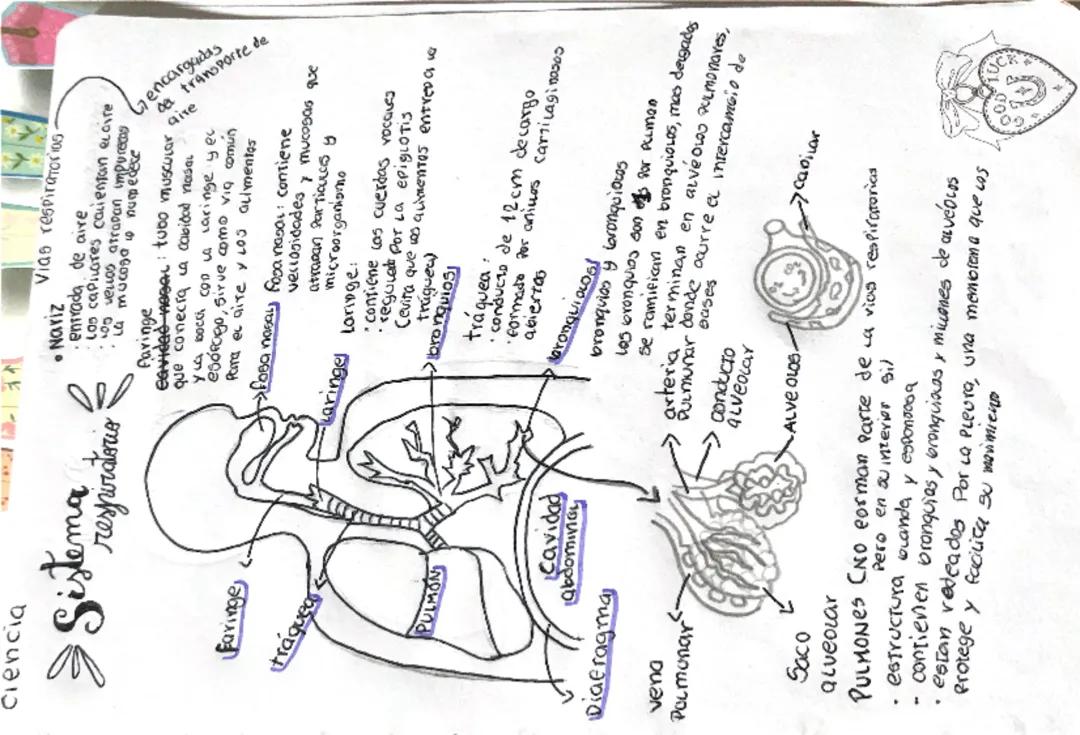 ciencia
Sistema
respiratorio
Vías respiratorias
encargadas
del transporte de
aire
• Nariz
· entrada de aire
· Los capilares calientan el aire
· los vellos atrapan impurezas
· La mucosa lo humedece
Faringe
cavidad nasal: tubo muscular
que conecta la cabidad nasal
y la boca con la laringe y el
esófago, sirve como vía común
Para el aire y los alimentos
fosa nasal: contiene
vellosidades y mucosas que
atrapan partículas y
microorganismo
Laringe:
· contiene las cuerdas vocales
· regulada Por la epiglotis
(evita que los alimentos entren a la
tráquea)
tráquea:
· conducto de 12 cm de largo
· formado por anillos cartilaginosos
abiertos
bronquios y bronquiolos
Los bronquios son por pulmón
se ramifican en bronquiolos, mas delgados
terminan en alvéolos pulmonares,
donde ocurre el intercambio de
gases
fosa nasal
laringe
bronquios
bronquiolos
faringe
tráquea
PULMÓN
cavidad
abdominal
Diafragma
vena
Pulmonar
arteria
Pulmonar
conducto
alveolar
Saco
alveolar
Alveolos
capilar
PULMONES (No forman Parte de la vias respiratorias
Pero en su interior sí)
· estructura blanda y esponosa
· contienen bronquios y bronquiolos y millones de alvéolos
· estan rodeados Por la Pleura, una membrana que los
Protege y facilita su movimiento
GOOD LUCK